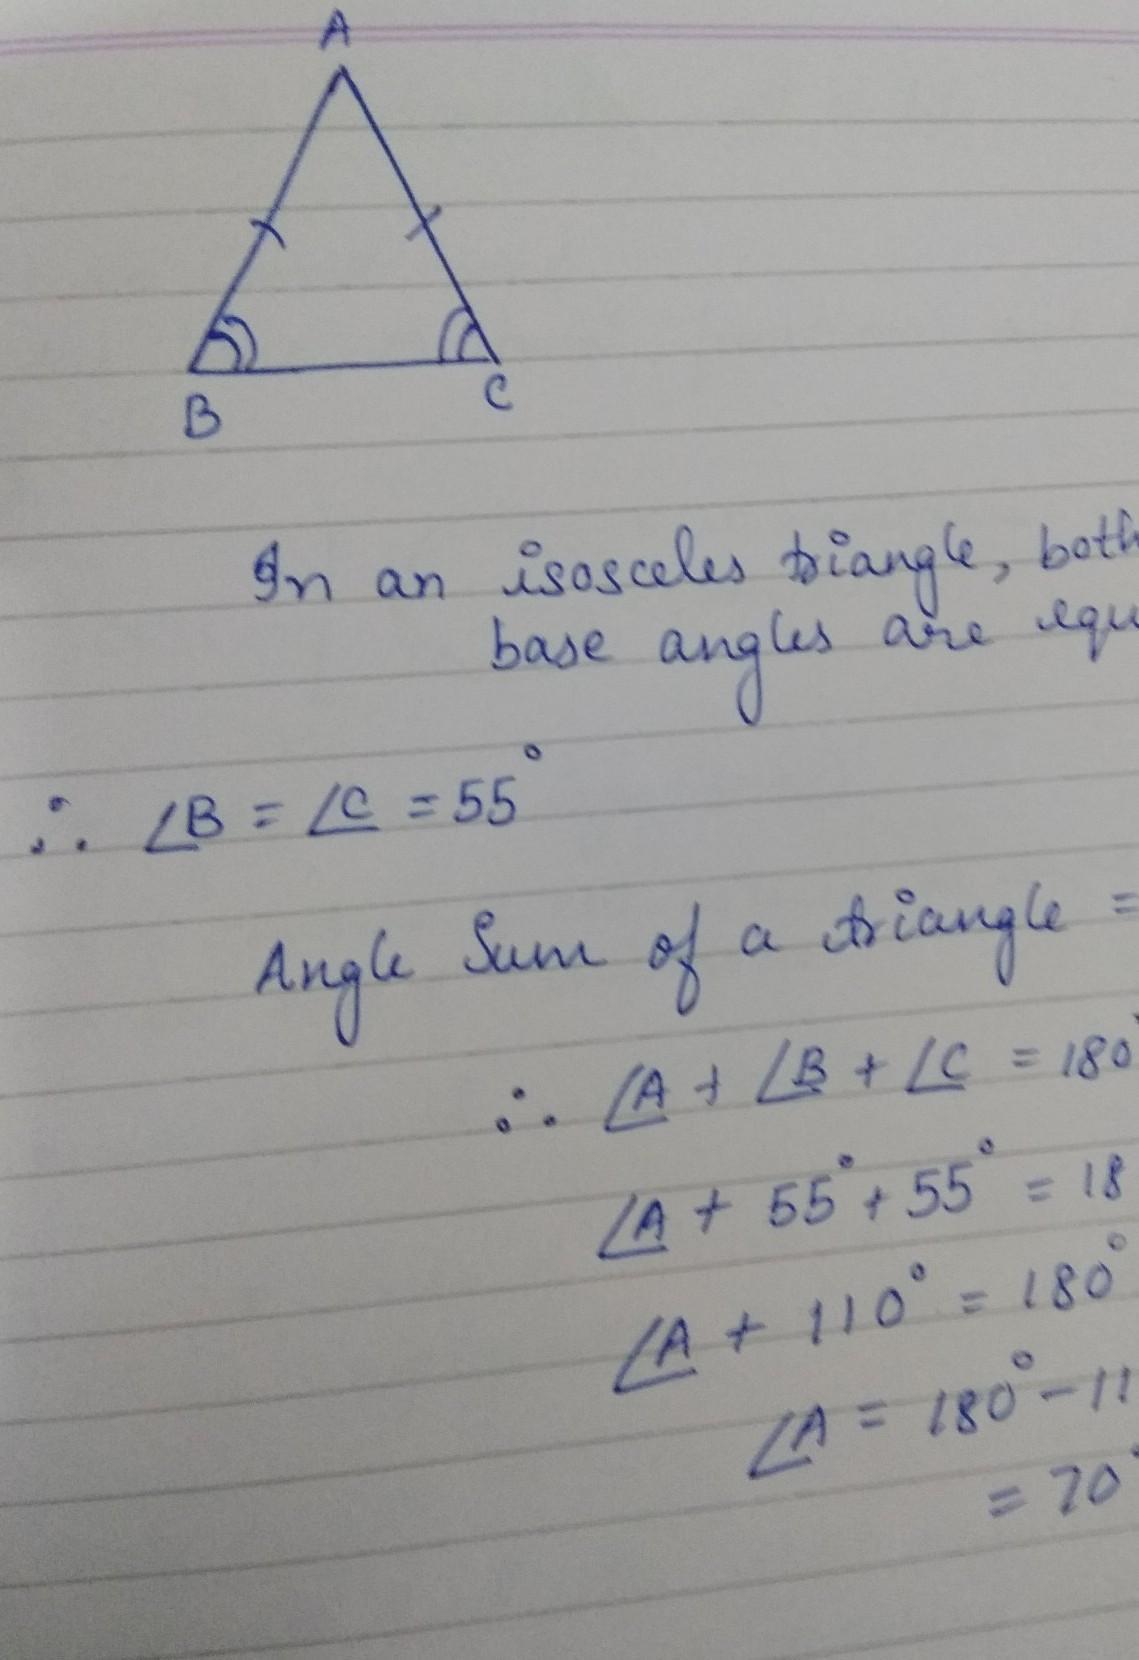 A
B
C
In an isosceles triangle, both
base angles are equ
∴ ∠B = ∠C = 55°
Angle Sum of a triangle =
∴ ∠A + ∠B + ∠C = 180°
∠A + 55° + 55° = 18
∠A + 110° = 180°
∠A = 180° - 11
= 70°